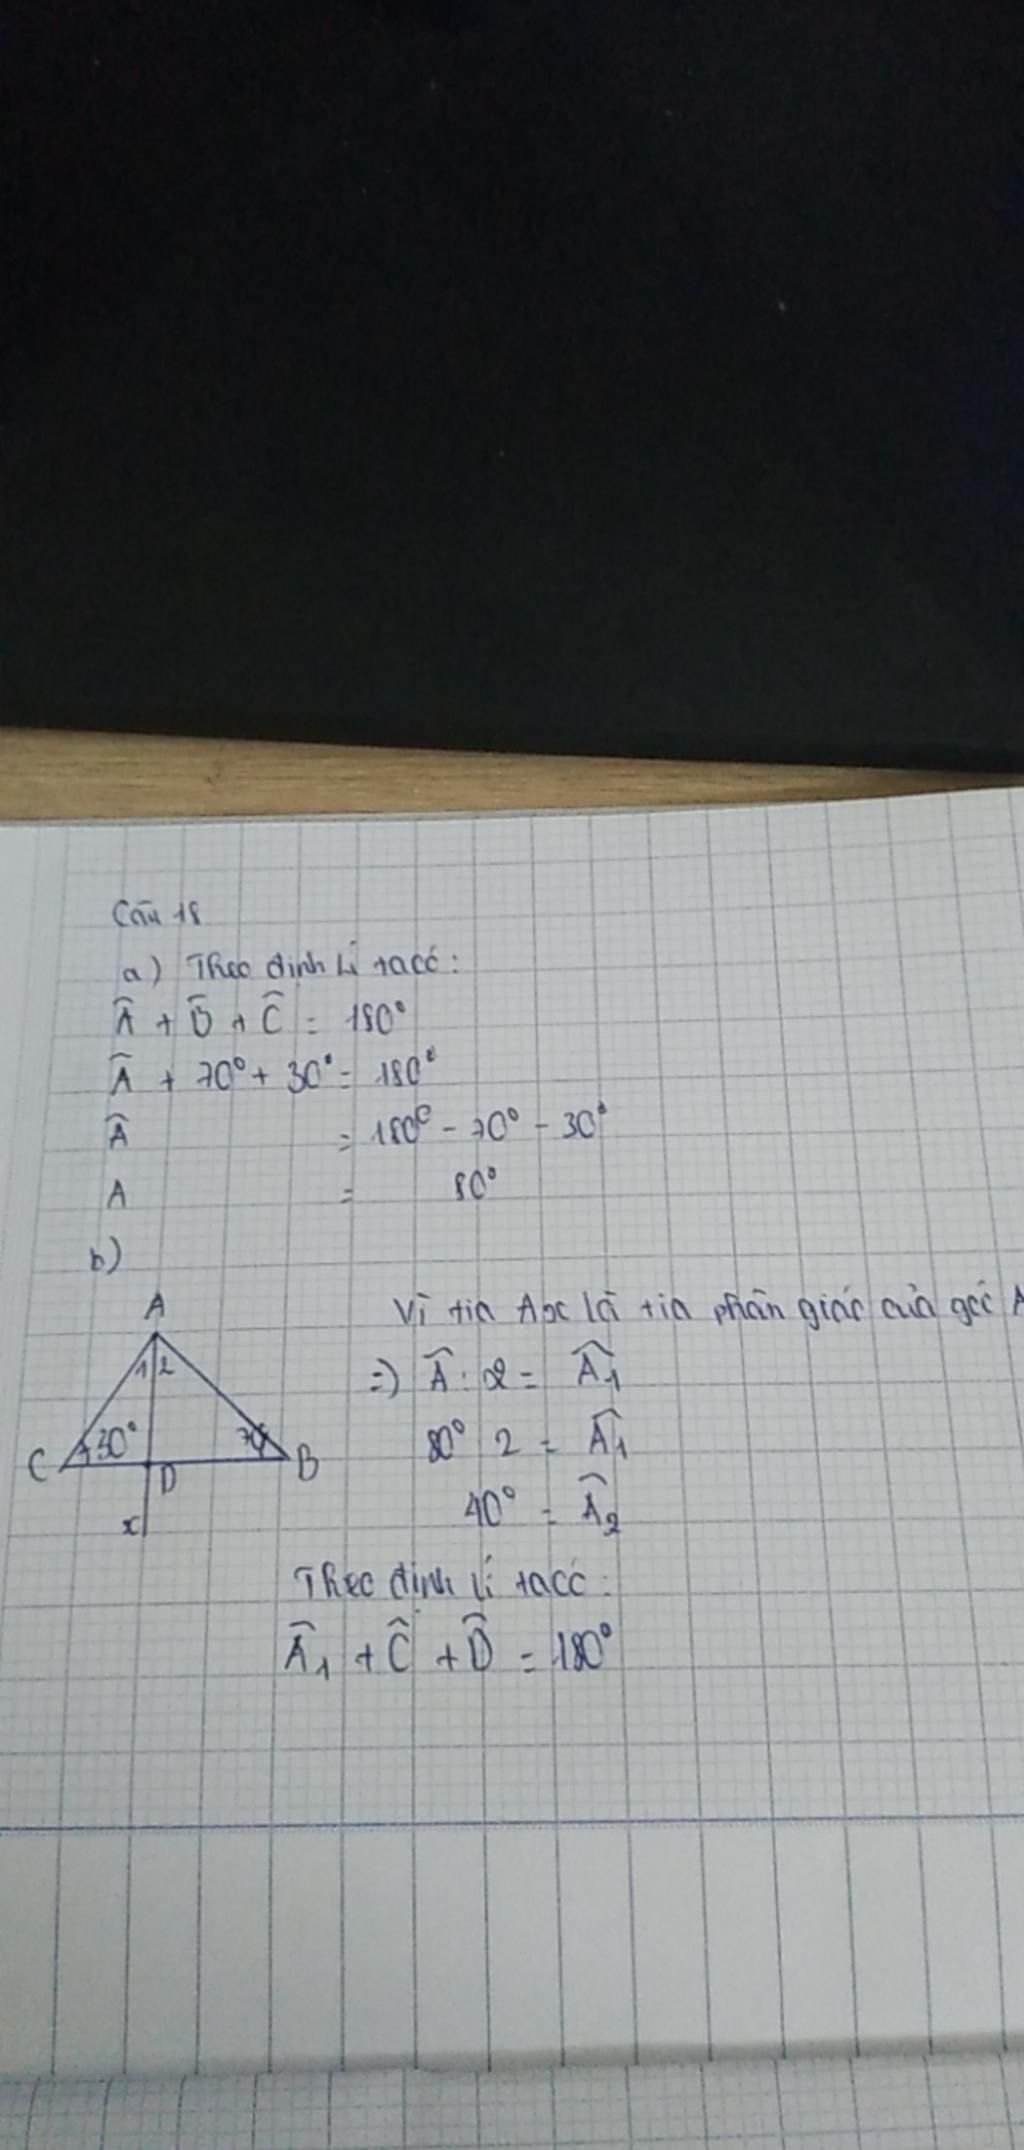 Câu 18
a) Theo định lí ta có:
Â + B̂ + Ĉ = 180°
Â + 70° + 30° = 180°
Â = 180° - 70° - 30°
A = 80°
b)
A
1 2
30° 70
C D B
x
Vì tia Ax là tia phân giác của góc A
=) Â : 2 = Â₁
80° 2 = Â₁
40° = Â₂
Theo định lí ta có:
Â₁ + Ĉ + D̂ = 180°